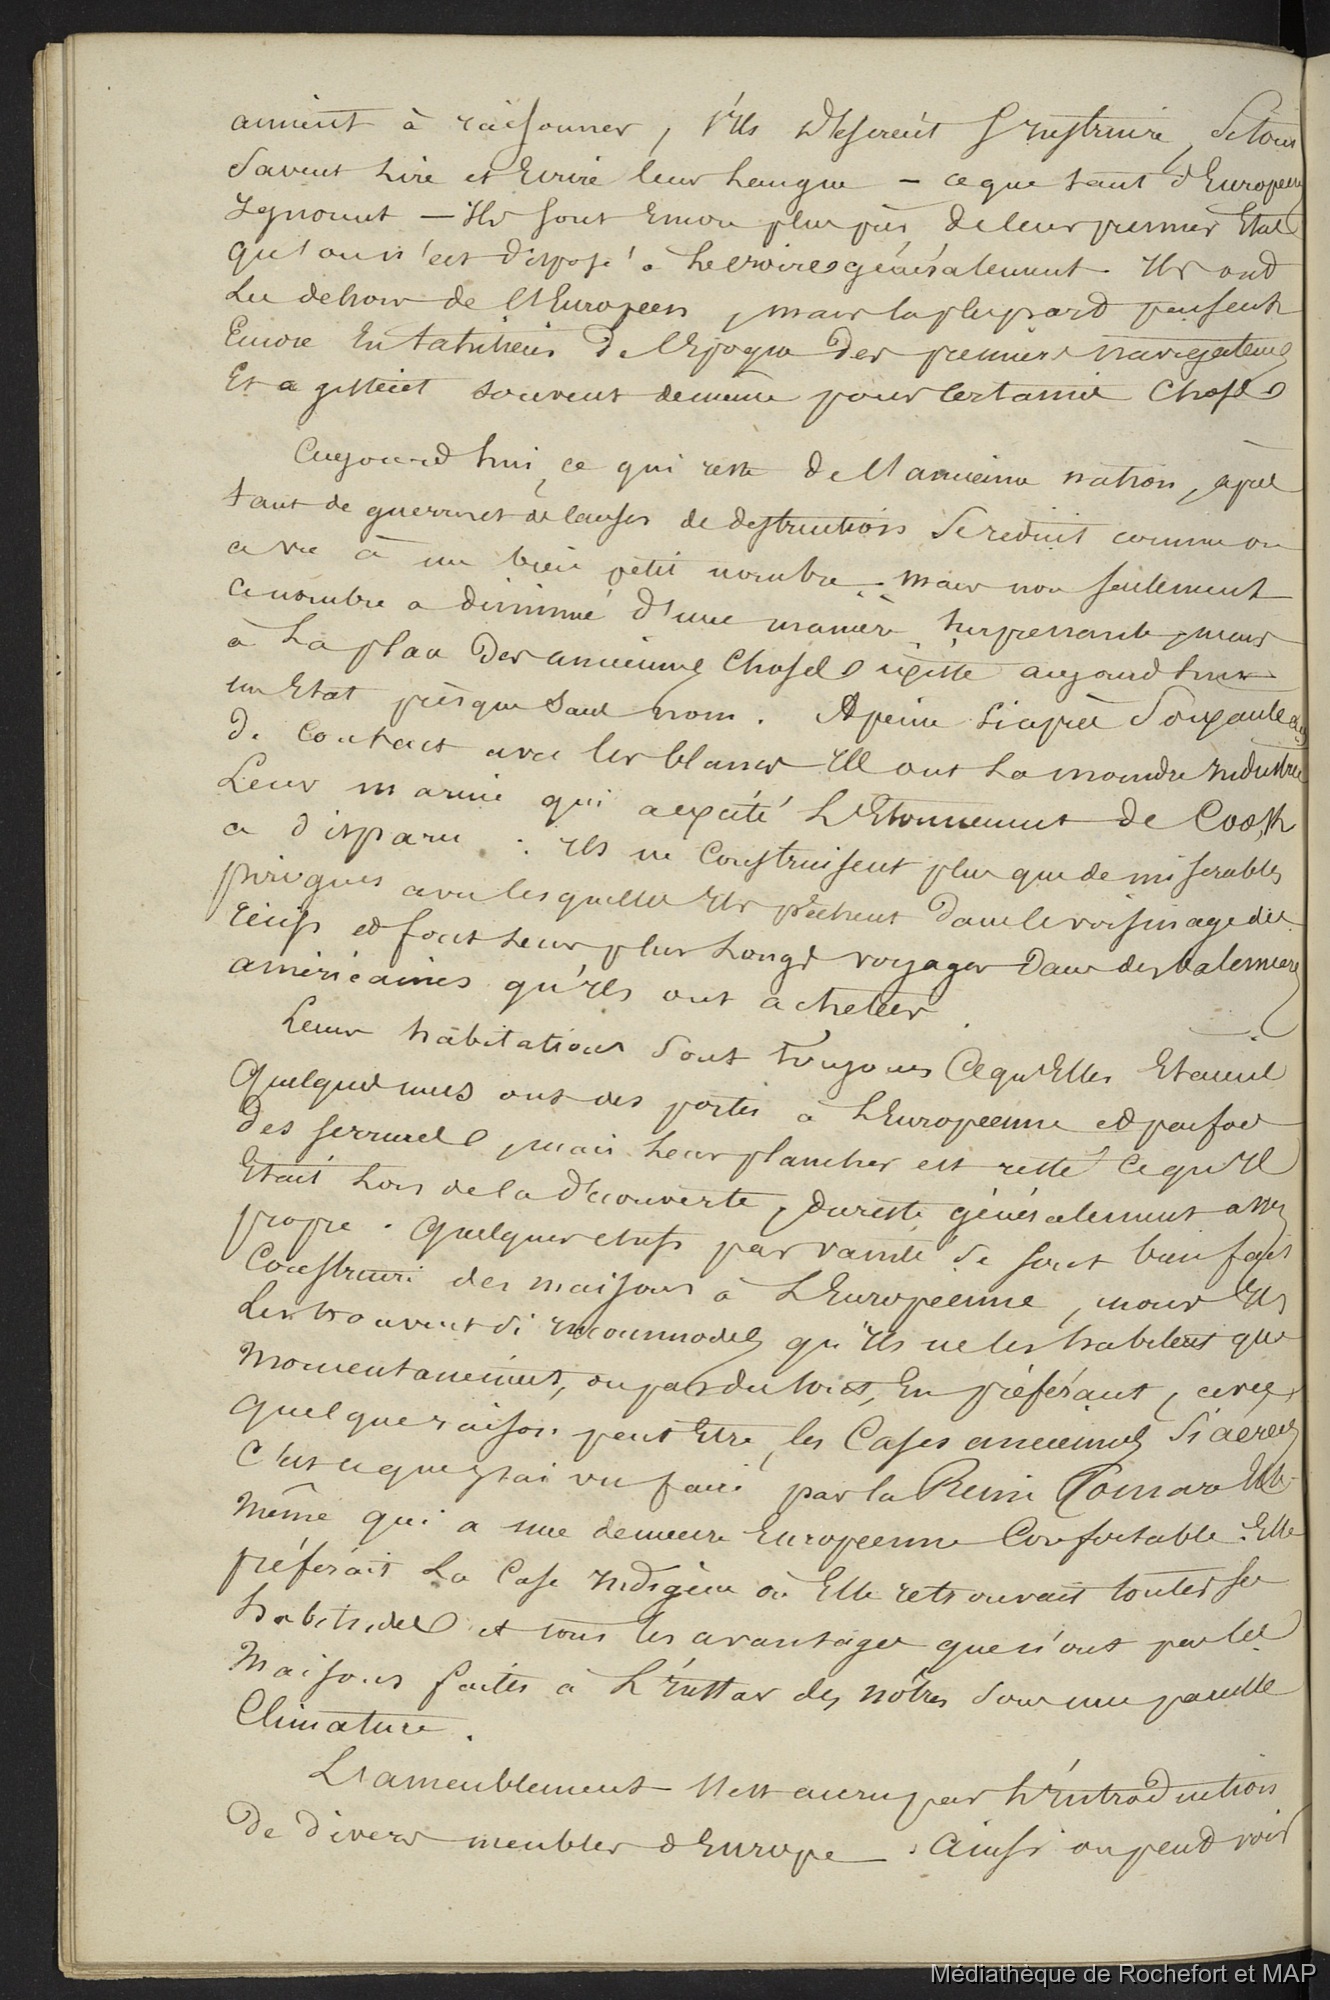 aiment à raisonner, s'ils désirent s'instruire, si tous
savent lire et Ecrire leur Langue – ce que tant d'Européens
Ignorent – Ils sont Encore plus près de leur premier Etat
qu'on n'est disposé à Le croire généralement. Ils ont
Les dehors de l'Européen, mais la plupart pensent
Encore En tahitiens de l'Epoque des premiers navigateurs
Et agissent souvent de même pour certaines Choses
Aujourd'hui, ce qui reste de l'ancienne nation, après
tant de guerres et de causes de destruction se réduit comme on
a vu à un bien petit nombre. mais non seulement
ce nombre a diminué d'une manière surprenante, mais
à La place des anciennes Choses existe aujourd'hui
un Etat presque sans nom. A peine si après soixante ans
de Contact avec les blancs Ils ont La moindre Industrie
Leur marine qui a excité L'Etonnement de Cook
a disparu : Ils ne Construisent plus que de misérables
pirogues avec lesquelles Ils pêchent dans le voisinage des
récifs et font Leurs plus Longs voyages dans des baleinières
américaines qu'Ils ont achetées.
Leurs habitations sont toujours Ce qu'Elles Etaient
Quelques unes ont des portes à L'Européenne et parfois
des serrures, mais Leur plancher est resté Ce qu'Il
Etait Lors de la découverte, du reste généralement assez
propre. Quelques chefs par vanité se sont bien fait
Construire des maisons à L'Européenne, mais Ils
Les trouvent si Incommodes qu'Ils ne les habitent que
momentanément, ou pas du tout, En préférant, avec
quelque raison peut Etre, les Cases anciennes si aérées
C'est ce que j'ai vu faire par la Reine Pomaré Elle
même qui a une demeure Européenne Confortable. Elle
préférait La Case Indigène où Elle retrouvait toutes ses
habitudes et tous les avantages que n'ont pas les
Maisons faites à L'Instar des nôtres sous une pareille
Climature.
L'ameublement s'est accru par L'Introduction
de divers meubles d'Europe. Ainsi on peut voir
Médiathèque de Rochefort et MAP